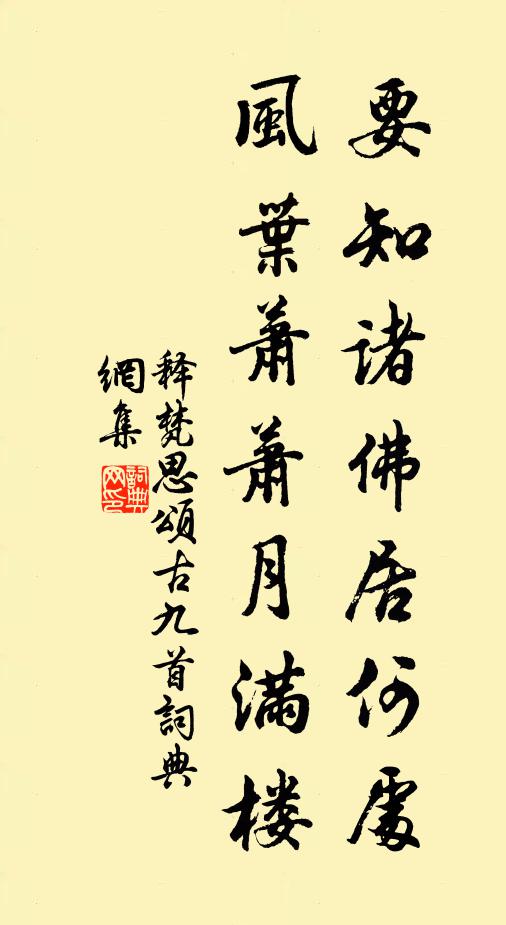 要知諸佛居何處
風葉蕭蕭月滿楼
释梵思頌古九首詞典
網集
詞典
网印